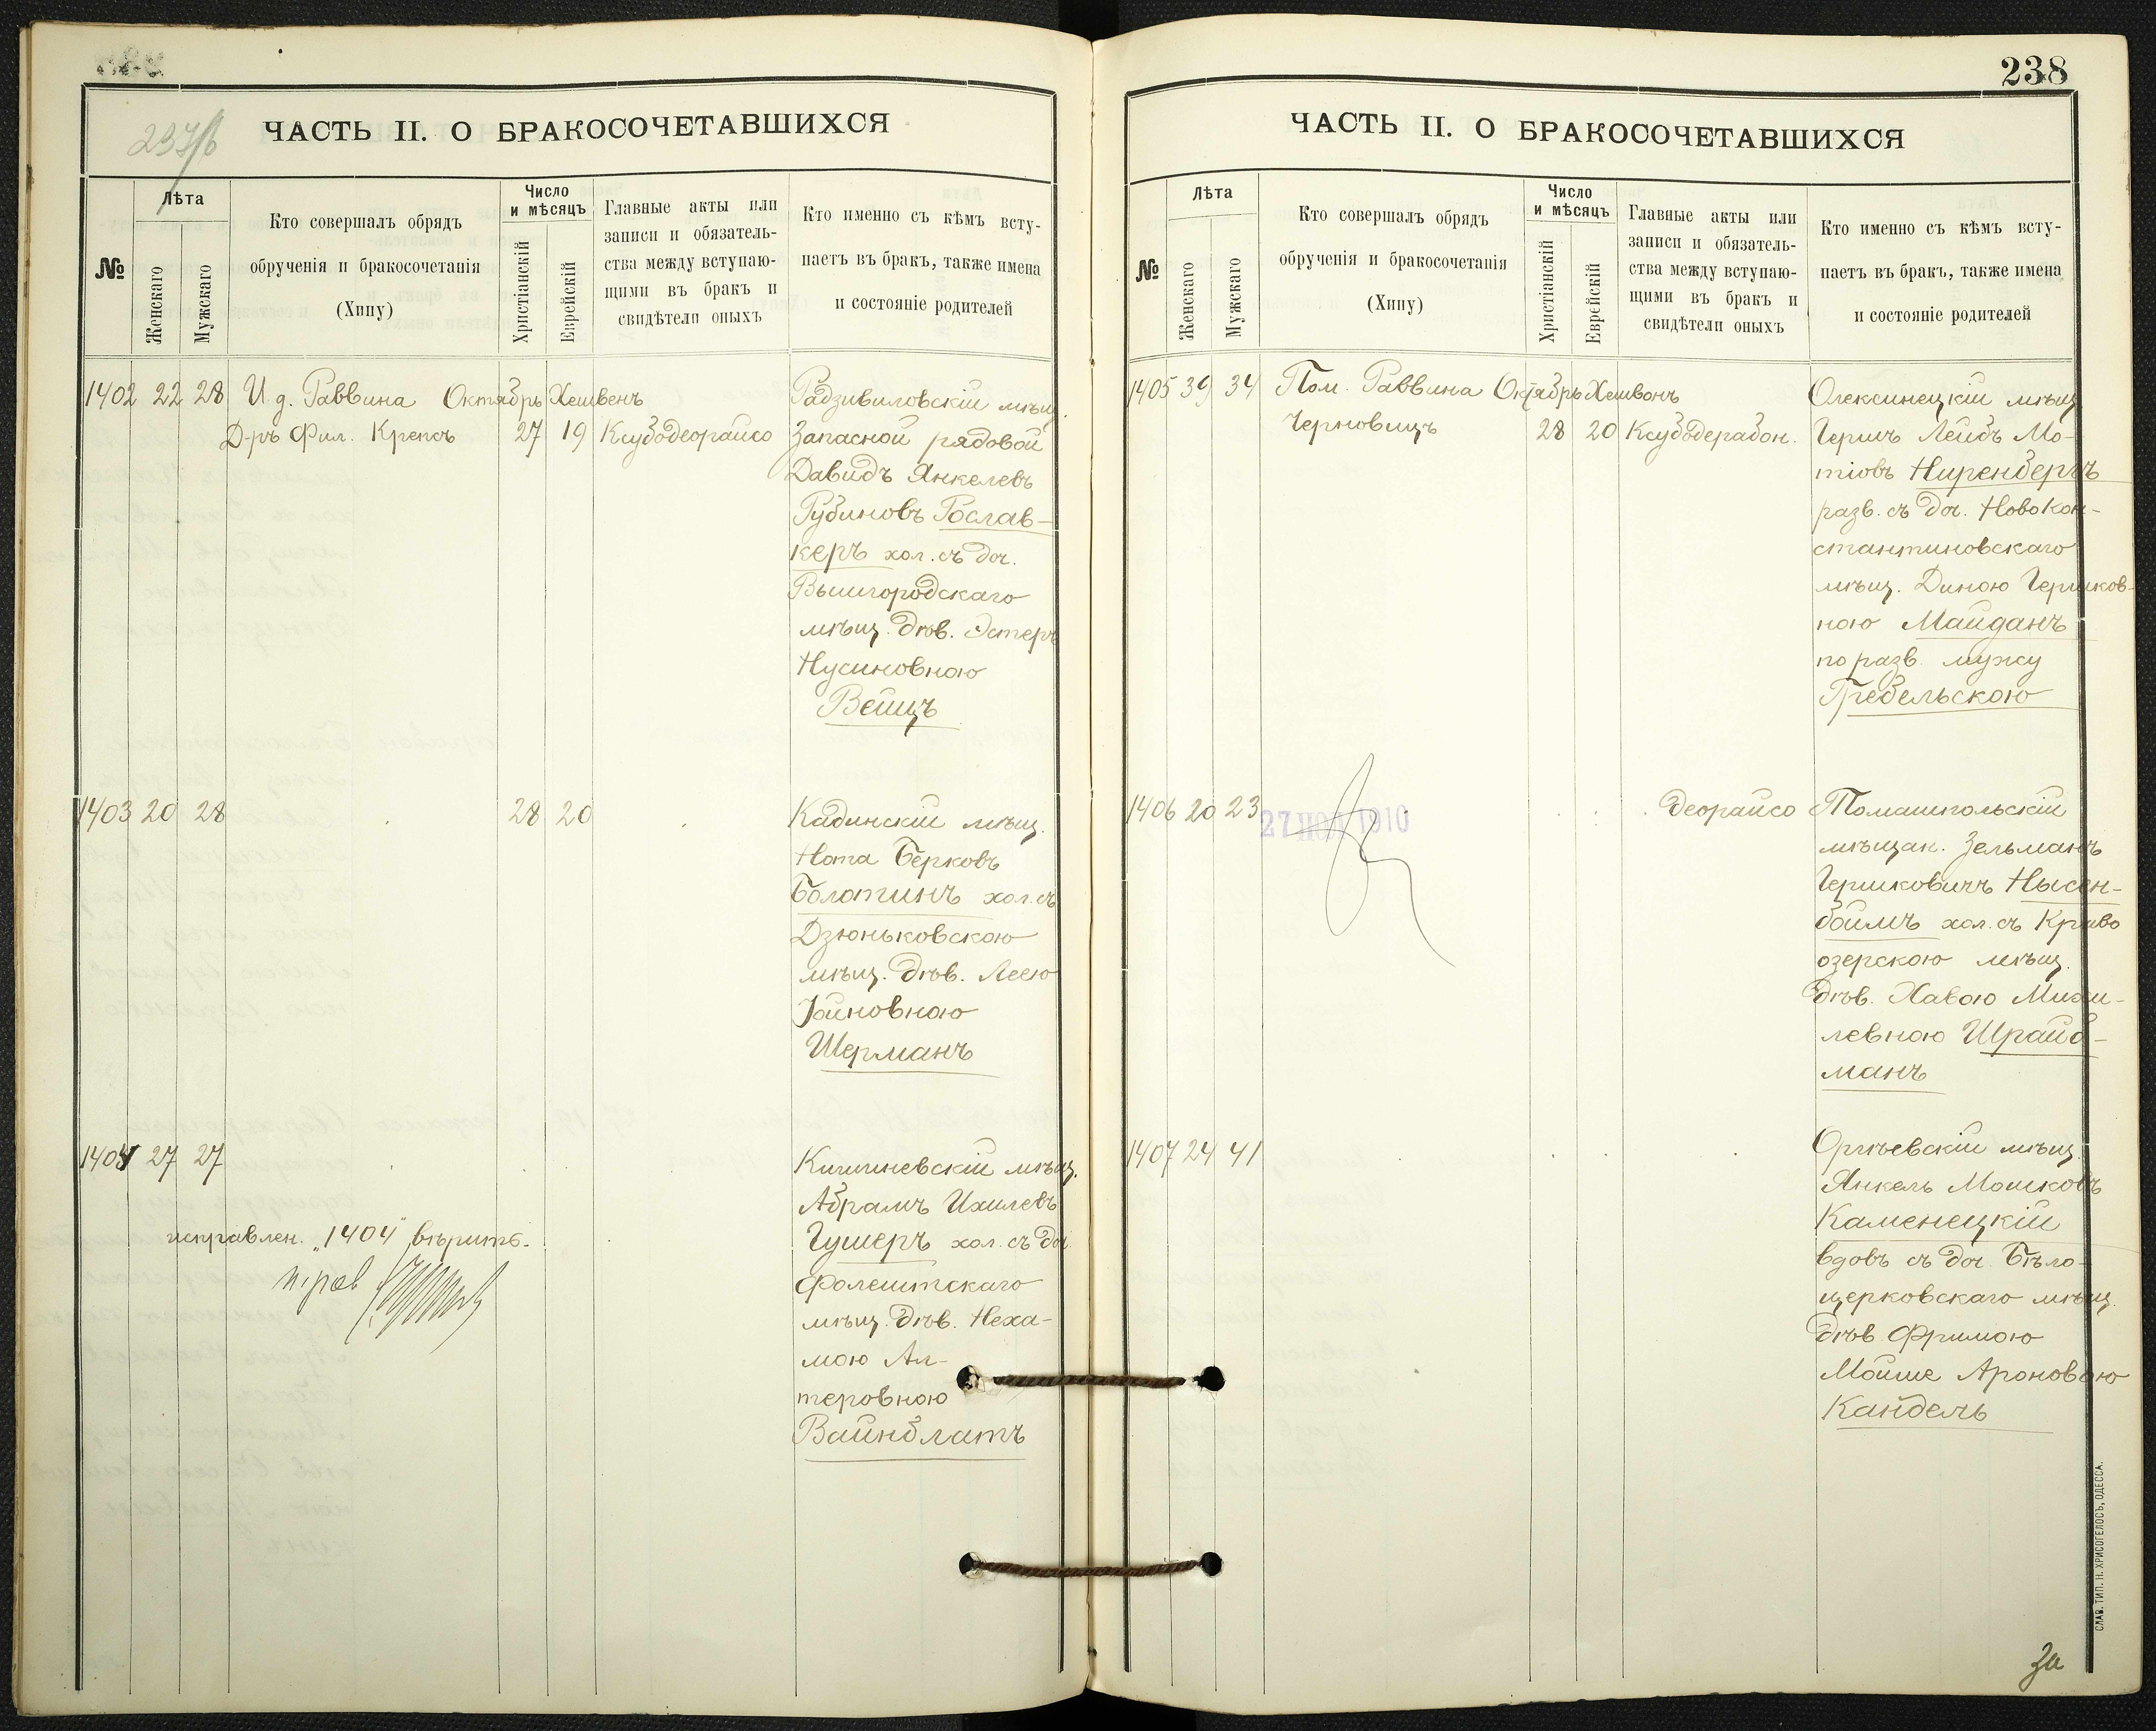 237/б
ЧАСТЬ II. О БРАКОСОЧЕТАВШИХСЯ
№
Лѣта
Женскаго
Мужскаго
Кто совершалъ обрядъ
обрученія и бракосочетанія
(Хипу)
Число
и мѣсяцъ
Христіанскій
Еврейскій
Главные акты или
записи и обязатель-
ства между вступаю-
щими въ бракъ и
свидѣтели оныхъ
Кто именно съ кѣмъ всту-
паетъ въ бракъ, также имена
и состояніе родителей
1402 22 28 И д. Раввина Октябрь Хешвенъ
Д-ръ Фил. Крепсъ 27 19 Ксубодеорайсо
Радзивиловскій мѣщ.
Запасной рядовой
Давидъ Янкелевъ
Рубиновъ Рослав-
керъ хол. съ доч.
Вышгородскаго
мѣщ. дѣв. Эстеръ
Нусиновною
Вейцъ
1403 20 28 28 20
Кадинскій мѣщ.
Нота Берковъ
Болотинъ хол. съ
Дзюньковскою
мѣщ. дѣв. Леею
Іойновною
Шерманъ
1404 27 27
исправлен. "1404" вѣрить.
Кишиневскій мѣщ.
Абрамъ Ихилевъ
Гушеръ хол. съ доч.
Фолештскаго
мѣщ. дѣв. Неха-
мою Ал-
теровною
Вайнблатъ
238
ЧАСТЬ II. О БРАКОСОЧЕТАВШИХСЯ
№
Лѣта
Женскаго
Мужскаго
Кто совершалъ обрядъ
обрученія и бракосочетанія
(Хипу)
Число
и мѣсяцъ
Христіанскій
Еврейскій
Главные акты или
записи и обязатель-
ства между вступаю-
щими въ бракъ и
свидѣтели оныхъ
Кто именно съ кѣмъ всту-
паетъ въ бракъ, также имена
и состояніе родителей
1405 39 34 Пом. Раввина Октябрь Хешвонъ
Черновицъ 28 20 Ксубодерабон.
Олексинецкій мѣщ.
Гершъ Лейбъ Мо-
тіовъ Ниренбергъ
разв. съ доч. Новокон-
стантиновскаго
мѣщ. Диною Гершков-
ною Майданъ
по разв. мужу
Гребельскою
1406 20 23 27 НОЯ 1910 деорайсо
Томашпольскій
мѣщан. Зельманъ
Гершковичъ Нысен-
боймъ хол. съ Криво
озерскою мѣщ.
дѣв. Хавою Михи-
левною Шрайб-
манъ
1407 24 41
Оргѣевскій мѣщ.
Янкель Мошковъ
Каменецкій
вдовъ съ доч. Бѣло-
церковскаго мѣщ.
дѣв. Фримою
Мойше Ароновою
Кандель
СЛАВ. ТИП. Н. ХРИСОГЕЛОСЪ, ОДЕССА.
За